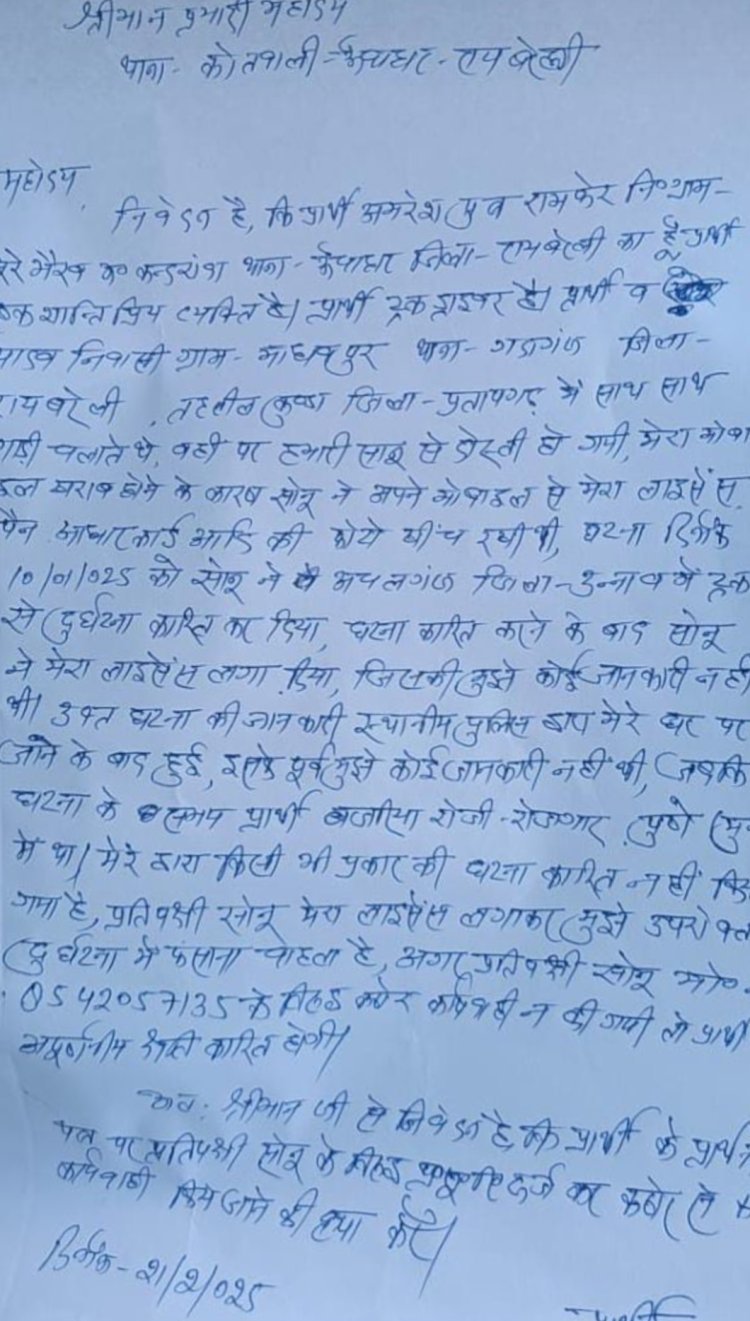 श्रीमान प्रभारी महोदय
थाना - कोतवाली - ऊँचाहार - रायबरेली
महोदय,
निवेदन है, कि प्रार्थी अमरेश पुत्र रामफेर नि० ग्राम -
पूरे भैरव का थाना - ऊँचाहार जिला - रायबरेली का हूँ प्रार्थी
एक शान्ति प्रिय व्यक्ति है। प्रार्थी ट्रक ड्राइवर है। प्रार्थी व
यादव निवासी ग्राम - माधवपुर थाना - गदागंज जिला -
रायबरेली, तहसील कुण्डा जिला - प्रतापगढ़ में साथ साथ
गाड़ी चलाते थे, वही पर हमारी सोनू से दोस्ती हो गयी, मेरा मोबा
इल खराब होने के कारण सोनू ने अपने मोबाइल से मेरा लाइसेंस,
पैन आधारकार्ड आदि की फोटो खींच रखी थी, घटना दिनांक
10/01/025 को सोनू ने अचलगंज जिला - उन्नाव में ट्रक
से दुर्घटना कारित कर दिया, घटना कारित करने के बाद सोनू
ने मेरा लाइसेंस लगा दिया, जिसकी मुझे कोई जानकारी नही
थी। उक्त घटना की जानकारी स्थानीय पुलिस द्वारा मेरे घर पर
जाने के बाद हुई, इसके पूर्व मुझे कोई जानकारी नहीं थी, जबकि
घटना के समय प्रार्थी बजरिया रोजी - रोजगार पुणे
में था। मेरे द्वारा किसी भी प्रकार की घटना कारित नहीं
गया है, प्रतिपक्षी सोनू मेरा लाइसेंस लगाकर मुझे उपरोक्त
दुर्घटना में फंसाना चाहता है, अगर प्रतिपक्षी सोनू मो०-
9542057135 के विरुद्ध कठोर कार्यवाही न की गयी तो प्रार्थी
अपूर्णनीय क्षति कारित होगी।
अतः श्रीमान जी से निवेदन है कि प्रार्थी के प्रार्थना
पत्र पर प्रतिपक्षी सोनू के विरुद्ध दर्ज कर कठोर से
कार्यवाही किये जाने की कृपा करें।
दिनांक - 21/2/025